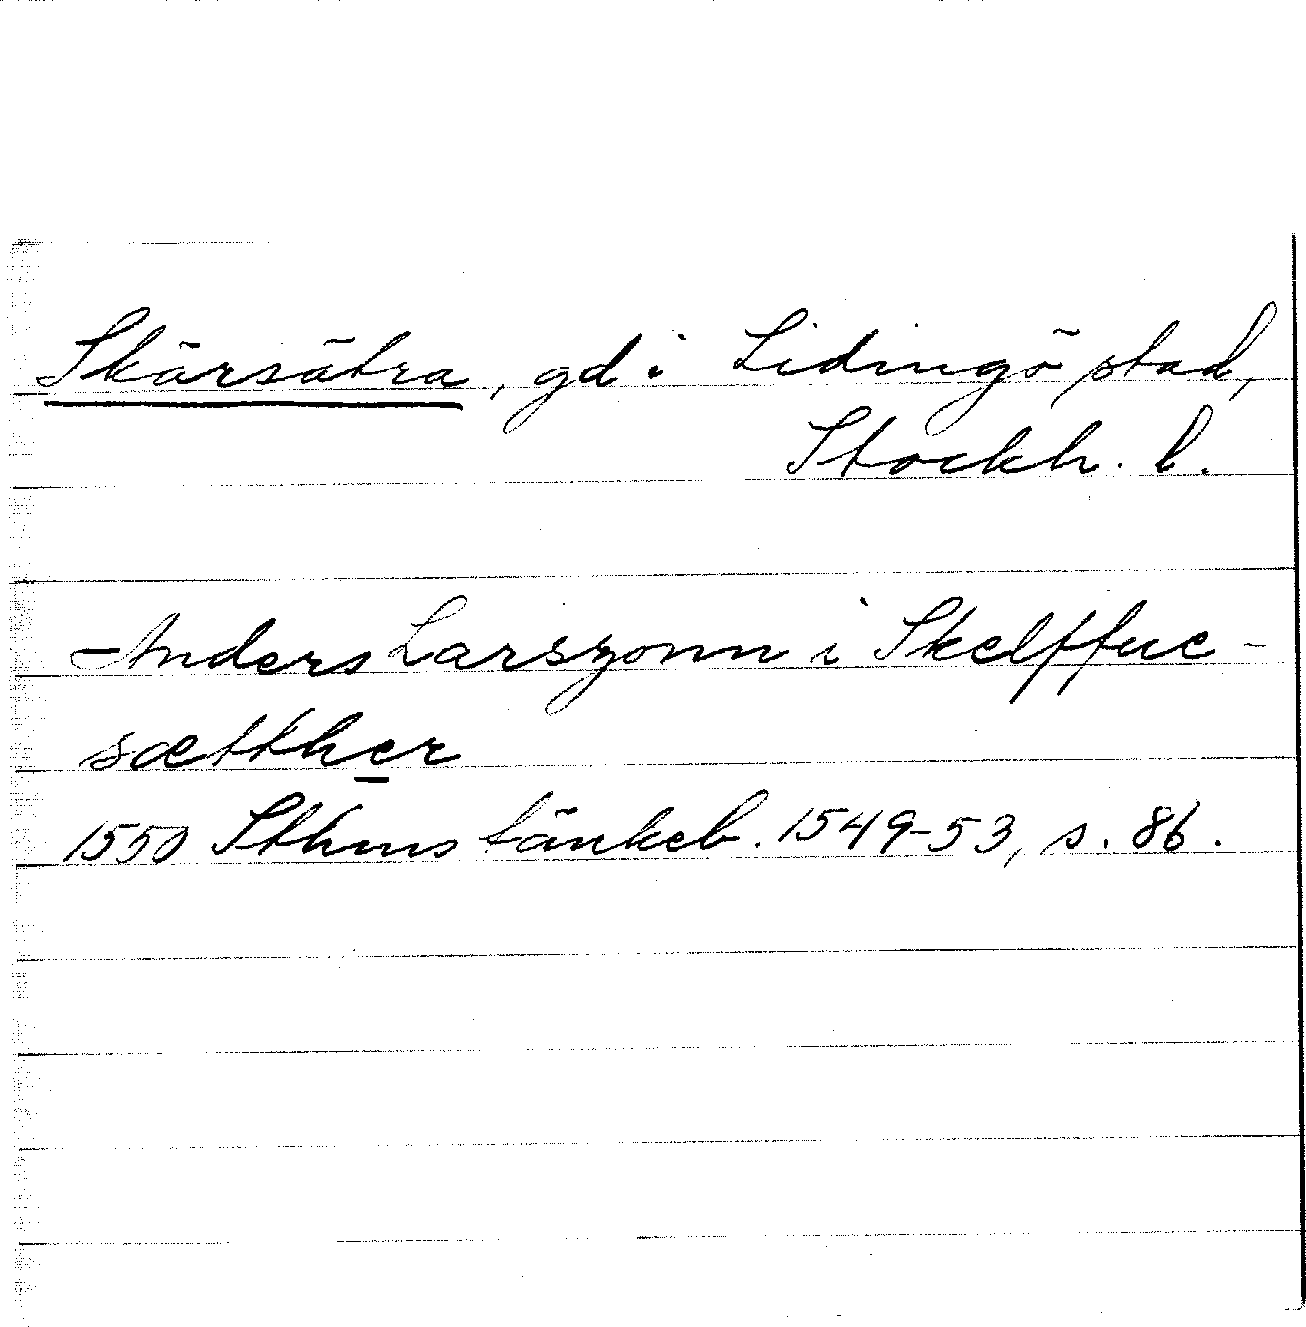 Skärsätra, gd i Lidingö stad,
Stockh. l.
Anders Larszonn i Skelffue-
sætther
1550 Sthms tänkeb. 1549-53, s. 86.